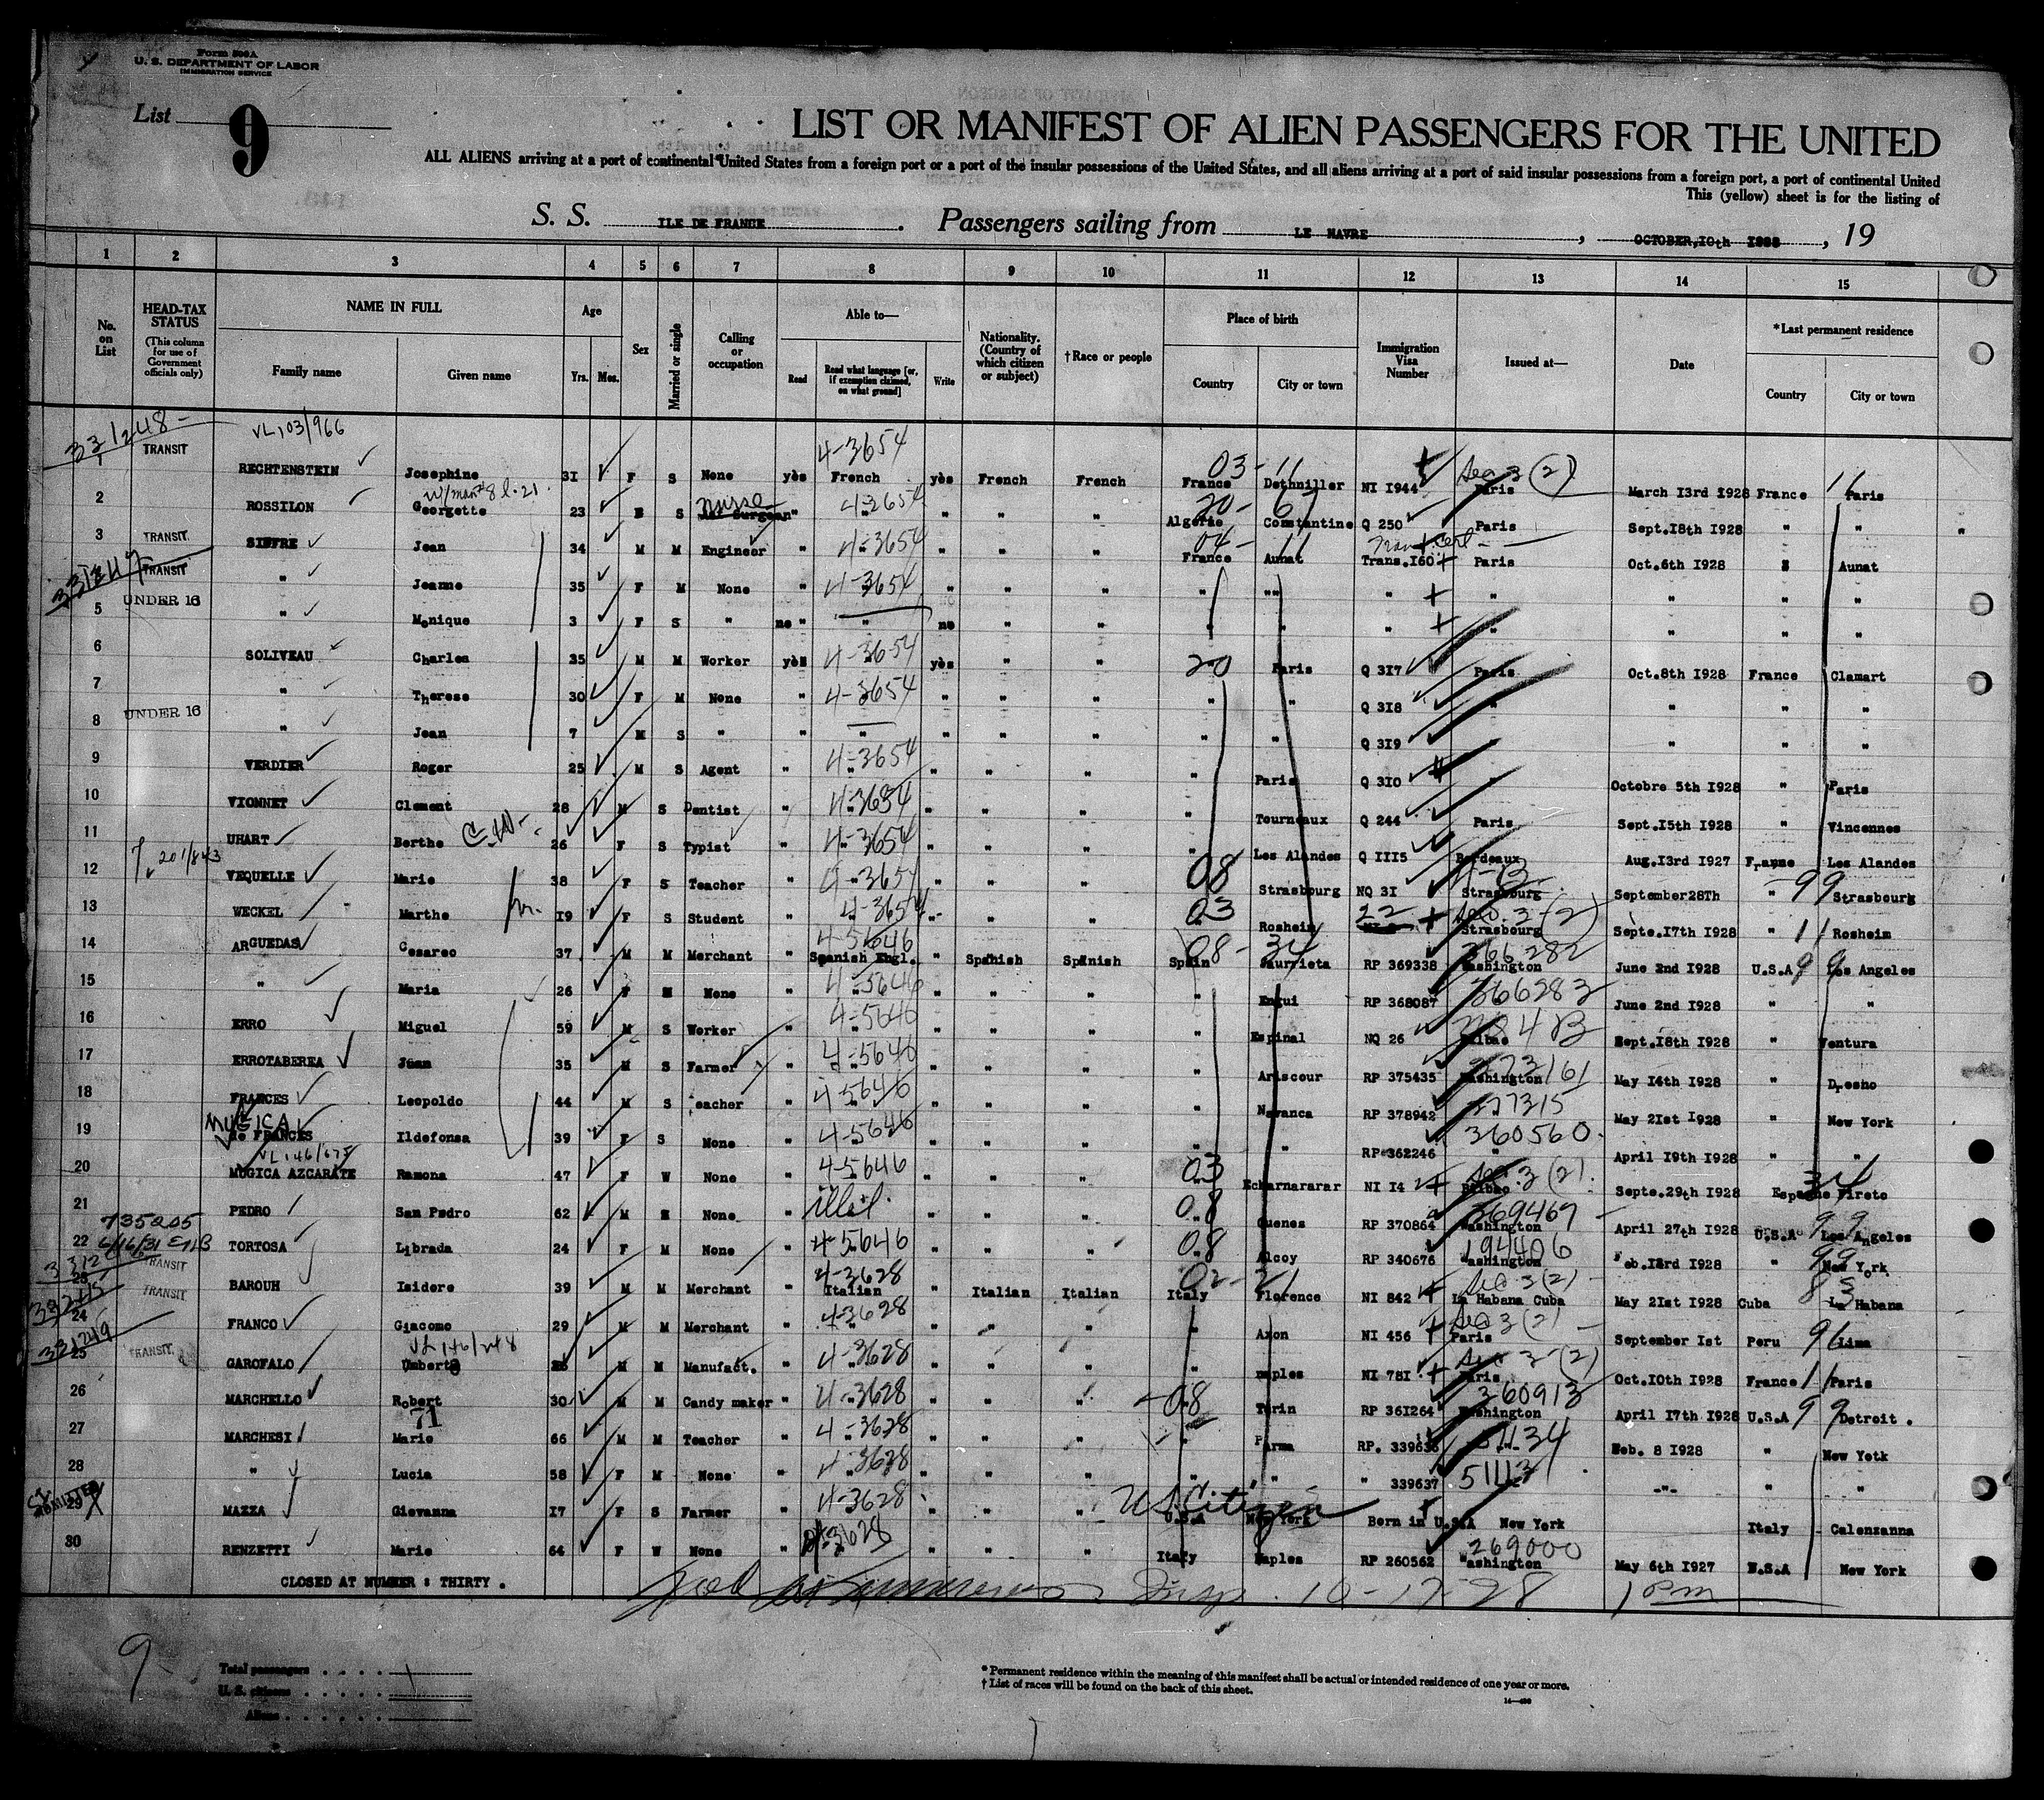 Form 500A
U. S. DEPARTMENT OF LABOR
IMMIGRATION SERVICE
List 9
LIST OR MANIFEST OF ALIEN PASSENGERS FOR THE UNITED
ALL ALIENS arriving at a port of continental United States from a foreign port or a port of the insular possessions of the United States, and all aliens arriving at a port of said insular possessions from a foreign port, a port of continental United
This (yellow) sheet is for the listing of
S. S. ILE DE FRANCE. Passengers sailing from LE HAVRE, OCTOBER,10th 1928, 19
1 2 3 4 5 6 7 8 9 10 11 12 13 14 15
No. on List
HEAD-TAX STATUS (This column for use of Government officials only)
NAME IN FULL
Family name
Given name
Age
Yrs. Mos.
Sex
Married or single
Calling or occupation
Able to—
Read
Read what language [or, if exemption claimed, on what ground]
Write
Nationality. (Country of which citizen or subject)
†Race or people
Place of birth
Country
City or town
Immigration Visa Number
Issued at—
Date
*Last permanent residence
Country
City or town
331248 - VL 103/966 4-3654 03-11 Sec 3 (2) 11
1 TRANSIT RECHTENSTEIN Josephine 31 F S None yès French yès French French France Dethniller NI 1944 Paris March 13rd 1928 France Paris
w/man# 8 l. 21. nurse 4-3654 20-67
2 ROSSILON Georgette 23 S Surgean " " " " " Algerie Constantine Q 250 Paris Sept.18th 1928 " "
4-3654 04-11
3 TRANSIT SIEFRE Jean 34 M M Engineer " " " " " France Aunat Trans.160 Paris Oct.6th 1928 Aunat
TRANSIT " Jeanne 35 F M None " 4-3654 " " " " "" " " " " "
5 UNDER 16 " Monique 3 F S " no " " no " " " " " " " " "
6 SOLIVEAU Charles 35 M M Worker yès 4-3654 yès " " 20 Paris Q 317 Paris Oct.8th 1928 France Clamart
7 " Therese 30 F M None " 4-3654 " " " " " Q 318 " " " "
8 UNDER 16 " Jean 7 M S " " " " " " " " Q 319 " " " "
9 VERDIER Roger 25 M S Agent " 4-3654 " " " " Paris Q 310 " Octobre 5th 1928 " Paris
10 VIONNET Clement 28 M S Dentist " 4-3654 " " " " Tourneaux Q 244 Paris Sept.15th 1928 " Vincennes
11 UHART Berthe 26 F S Typist " 4-3654 " " " " Les Alandes Q III5 Bordeaux Aug.13rd 1927 Franne Les Alandes
201/843
12 VEQUELLE Marie 38 F S Teacher " 4-3654 " " " 08 Strasbourg NQ 31 Strasbourg September28Th " 99 Strasbourg
13 WECKEL Marthe 19 F S Student " 4-3654 " " " 03 Rosheim 22 Sec. 3-(2) Strasbourg Septe.17th 1928 " 11 Rosheim
4-5646 08-34 366282
14 ARGUEDAS Cesareo 37 M M Merchant " Spanish Engl. " Spanish Spanish Spain Jaurrieta RP 369338 Washington June 2nd 1928 U.S.A 99 Los Angeles
15 " Maria 26 F M None " 4-5646 " " " " Engui RP 368087 366283 June 2nd 1928 " "
16 ERRO Miguel 59 M S Worker " 4-5646 " " " " Espinal NQ 26 Bilbao Sept.18th 1928 " Ventura
17 ERROTABEREA Juan 35 M S Farmer " 4-5646 " " " " Ariscour RP 375435 373161 Washington May 14th 1928 " Dresho
18 FRANCES Leopoldo 44 M S eacher " 4-5646 " " " " Navanca RP 378942 377315 May 21st 1928 " New York
MUGICA
19 de FRANCES Ildefonsa 39 F S None " 4-5646 " " " " " RP 362246 360560. " April 19th 1928 " "
VL 146/675
20 MUGICA AZCARATE Ramona 47 F W None " 4-5646 " " " 03 Echarnararar NI 14 Sec. 3 (2). Bilbao Septe.29th 1928 Espagne 34 Fireto
21 PEDRO San Pedro 62 M None " " " " 08 Quenes RP 370864 369469 Washington April 27th 1928 U.S.A 99 Los Angeles
735205 6/16/31
22 TORTOSA Librada 24 F M None " 4-5646 " " " 08 Alcoy RP 340676 194406 Washington Feb.13rd 1928 " 99 New York
4-3628 02-21 Sec 3 (2) 83
23 TRANSIT BAROUH Isidore 39 M M Merchant Italian " Italian Italian Italy Florence NI 842 La Habana Cuba May 21st 1928 Cuba La Habana
24 TRANSIT FRANCO Giacomo 29 M M Merchant " 4-3628 " " " " Axon NI 456 Sec 3 (2) Paris September 1st Peru 96 Lima
331249 VL 146/248
25 TRANSIT GAROFALO Umberto M M Manufact. " 4-3628 " " " " naples NI 781 Sec 3-(2) Paris Oct.10th 1928 France 11 Paris
26 MARCHELLO Robert 30 M M Candy maker " 4-3628 " " " 08 Turin RP 361264 360913 Washington April 17th 1928 U.S.A 99 Detroit .
71
27 MARCHESI Marie 66 M M Teacher " 4-3628 " " " " Parma RP. 339636 51134 Feb. 8 1928 " New Yotk
28 " Lucia 58 F M None " 4-3628 " " " " " " 339637 51113 -"- " "
ADMITTED
29 MAZZA Giovanna 17 F S Farmer " 4-3628 " " " U.S.A New York U.S. Citizen Born in U.S.A New York Italy Calenzanna
30 RENZETTI Marie 64 F W None " 4-3628 " " " Italy Naples RP 260562 269000 Washington May 6th 1927 U.S.A New York
CLOSED AT NUMBER : THIRTY .
Insp. 10-17-28 1 PM
9-
Total passengers
U. S. citizens
Aliens
* Permanent residence within the meaning of this manifest shall be actual or intended residence of one year or more.
† List of races will be found on the back of this sheet.